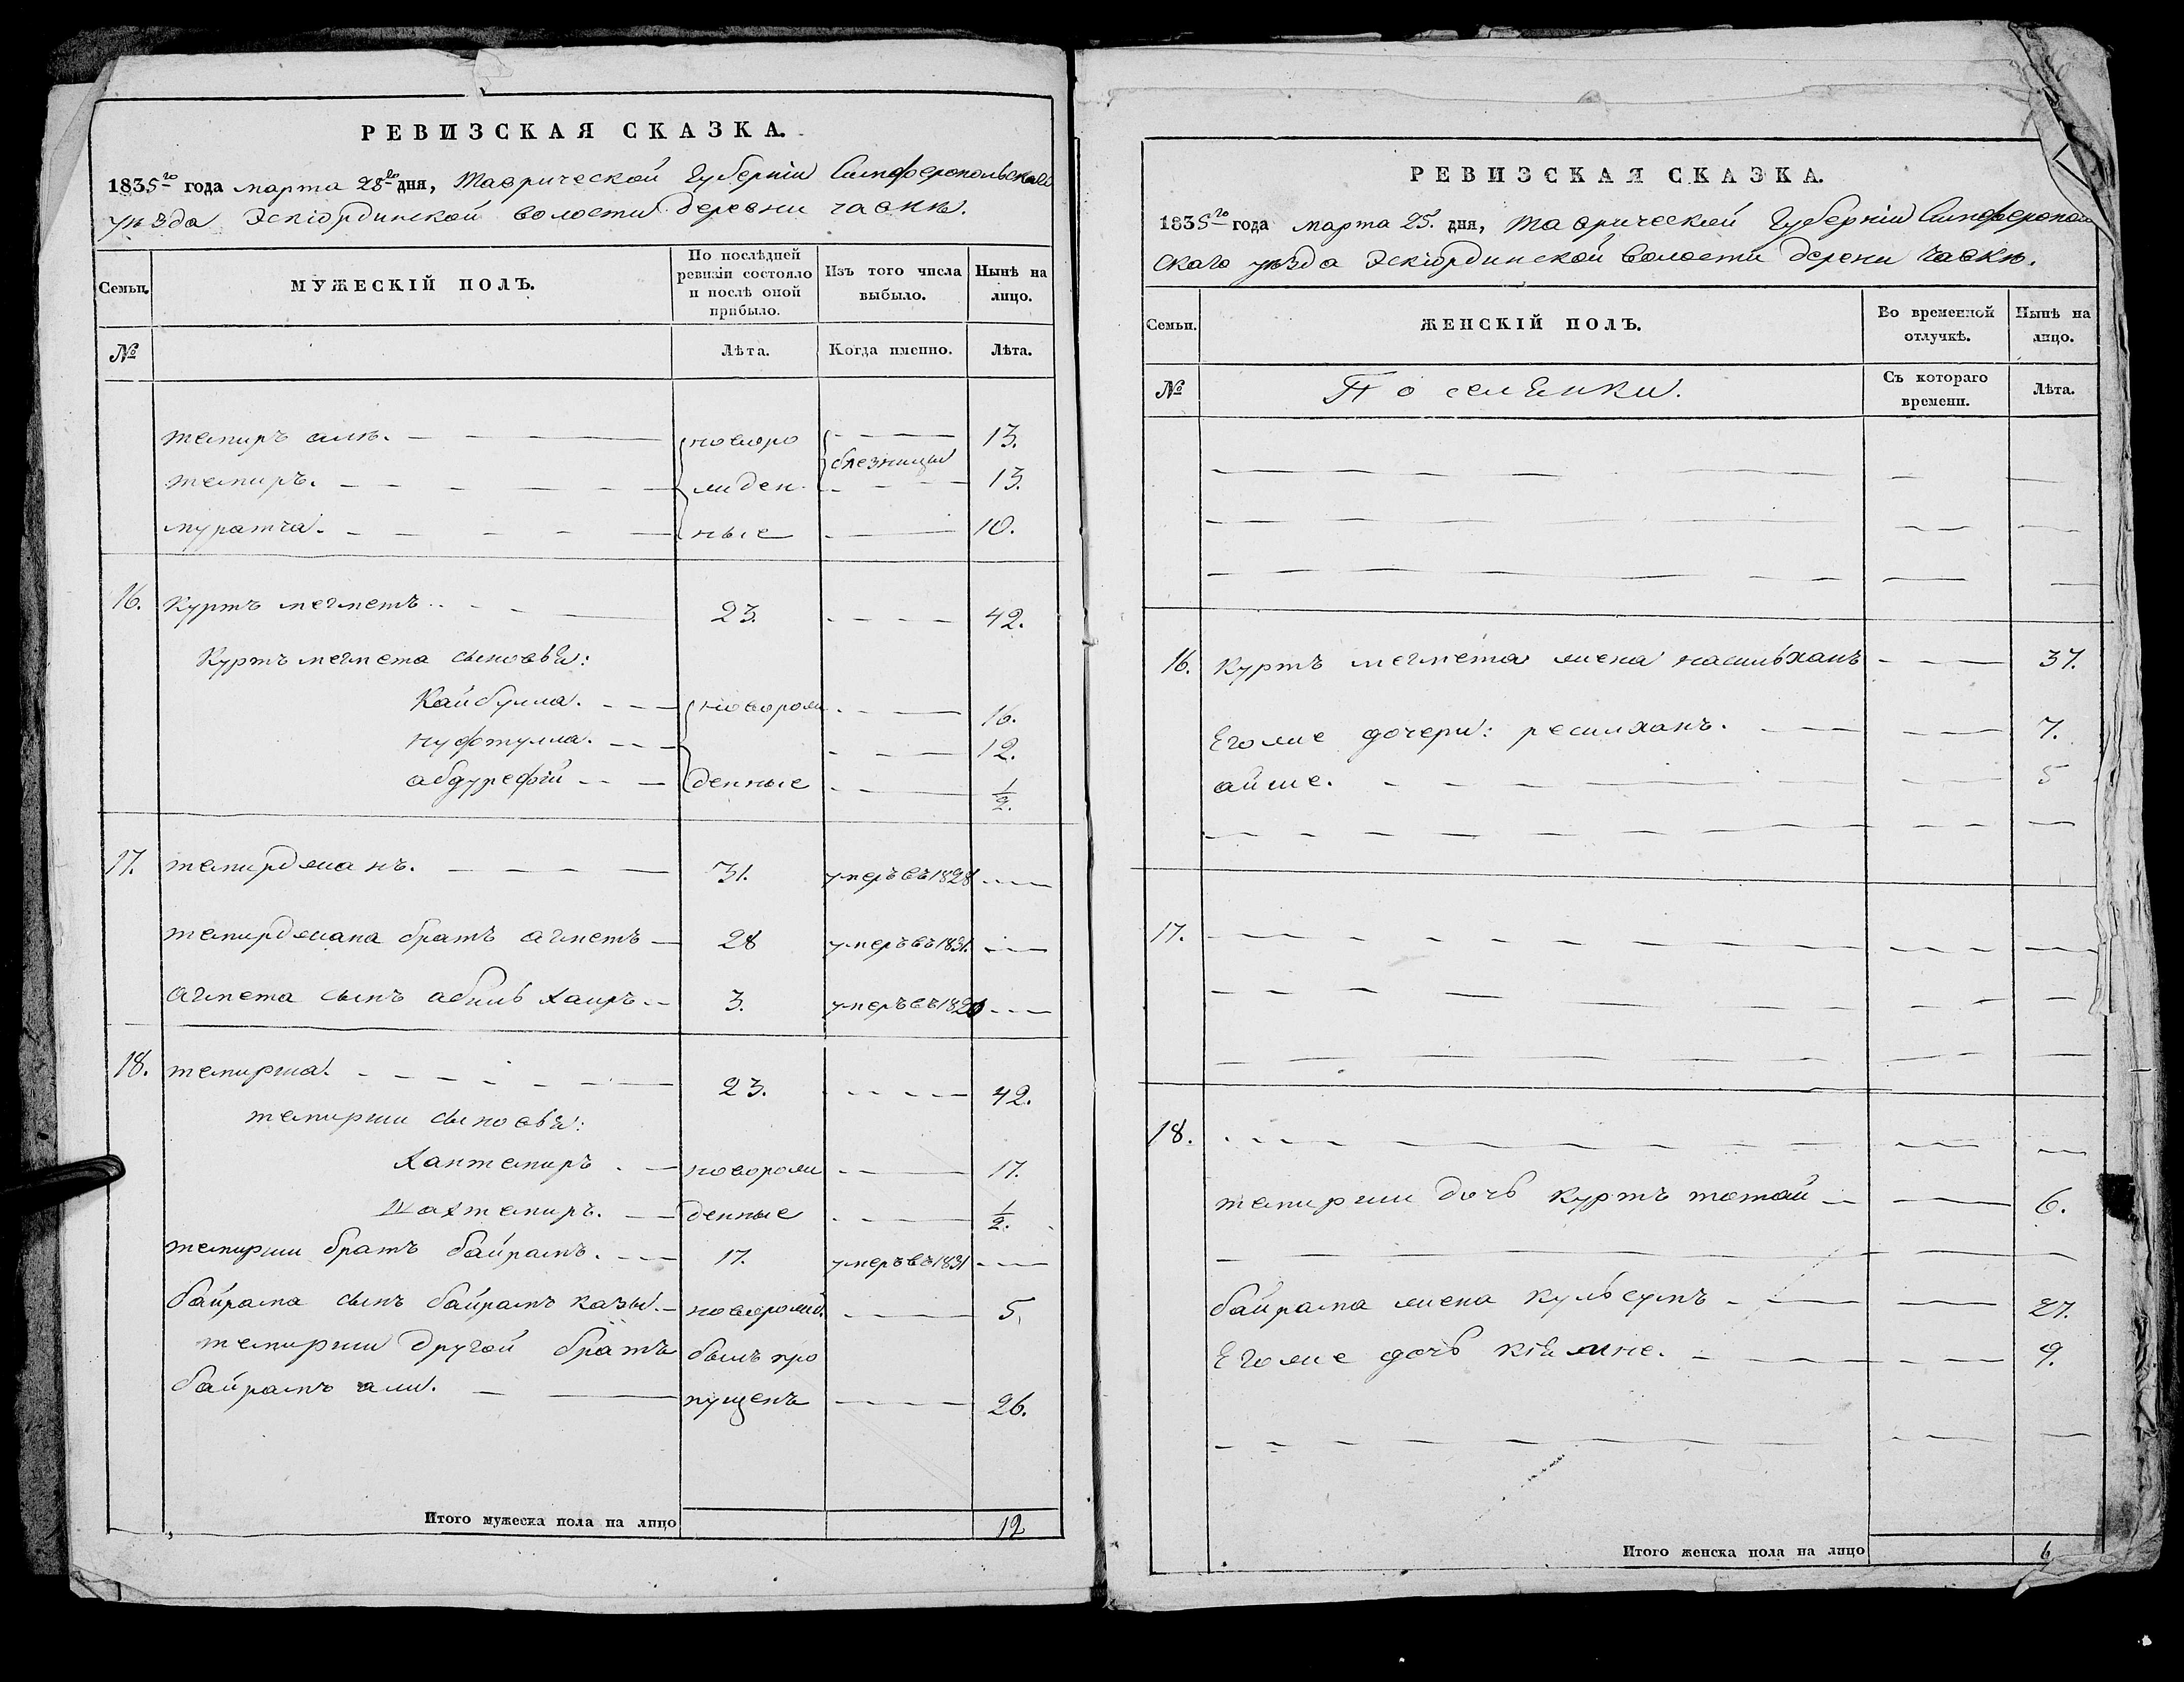 РЕВИЗСКАЯ СКАЗКА.
1835го года марта 25го дня, Таврической Губерніи Симферопольскаго
уѣзда Эскіордынской волости деревни чавкѣ.
Семьи. МУЖЕСКІЙ ПОЛЪ. По послѣдней ревизіи состояло и послѣ оной прибыло. Изъ того числа выбыло. Нынѣ на лицо.
№ Лѣта. Когда именно. Лѣта.
темиръ али. новоро 13.
близницы
темиръ. жден 13.
муратча. ные 10.
16. Куртъ мегметъ 23. 42.
Куртъ мегмета сыновья:
Кайбулла. новорож 16.
нуфтулла. 12.
абдурефій денные 1/2.
17. темирджанъ. 31. умеръ въ 1828
темирджана братъ агметъ 28 умеръ въ 1831.
агмета сынъ абиль хаиръ 3. умеръ въ 1820
18. темирша. 23. 42.
темирши сыновья:
хантемиръ новорож 17.
шахтемиръ. денные 1/2.
темирши братъ байрамъ. 17. умеръ въ 1831
байрама сынъ байрамъ казы. новорожд. 5.
темирши другой братъ былъ про
байрамъ али. пущенъ 26.
Итого мужеска пола на лицо 12
РЕВИЗСКАЯ СКАЗКА.
1835го года марта 25. дня, Таврической Губерніи Симферополь
скаго уѣзда Эскіордынской волости дерени чавкѣ.
Семьи. ЖЕНСКІЙ ПОЛЪ. Во временной отлучкѣ. Нынѣ на лицо.
№ Поселянки. Съ котораго времени. Лѣта.
16. Куртъ мегмета жена насильханъ 37.
Его же дочери: ресилханъ. 7.
айше. 5
17.
18.
темирши дочь куртъ тотай 6.
байрама жена кульсумъ 27.
Его же дочь кіямне. 9.
Итого женска пола на лицо 6